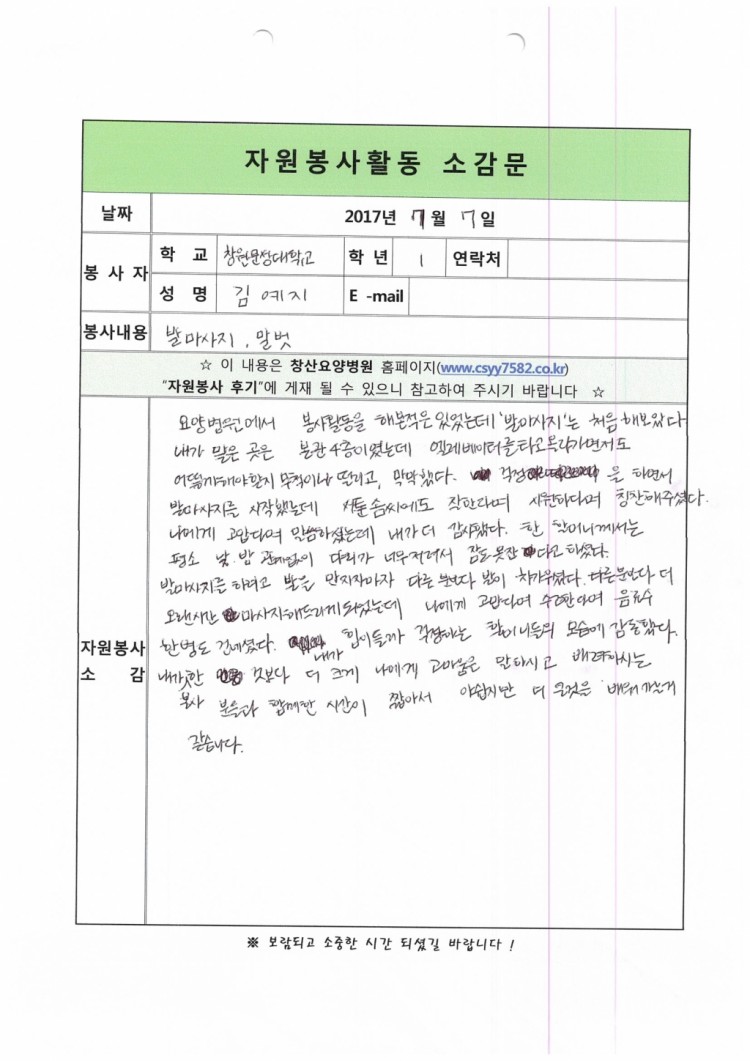 자원봉사활동 소감문
날짜 2017년 7월 7일
봉사자 학교 창원문성대학교 학년 1 연락처
성명 김예지 E-mail
봉사내용 발마사지, 말벗
☆ 이 내용은 창산요양병원 홈페이지(www.csyy7582.co.kr)
"자원봉사 후기"에 게재 될 수 있으니 참고하여 주시기 바랍니다 ☆
자원봉사 소감
요양병원에서 봉사활동을 해본적은 있었는데 '발마사지'는 처음 해보았다
내가 맡은 곳은 본관 4층이였는데 엘레베이터를 타고 올라가면서도
어떻게해야할지 무척이나 떨리고, 막막했다. 걱정을 하면서
발마사지를 시작했는데 서툰 솜씨에도 착하다며 시원하다며 칭찬해주셨다.
나에게 고맙다며 말씀하셨는데 내가 더 감사했다. 한 할머니께서는
평소 낮, 밤 관계없이 다리가 너무 저려서 잠도 못잔다고 하셨다.
발마사지를 하려고 발을 만지자마자 다른 분보다 발이 차가우셨다. 다른분보다 더
오랜시간 마사지해드리게 되었는데 나에게 고맙다며 수고한다며 음료수
한병도 건네셨다. 내가 힘이들까 걱정하는 할머니들의 모습에 감동했다.
내가한 것보다 더 크게 나에게 고마움을 말하시고 배려하시는
분들과 함께한 시간이 짧아서 아쉽지만 더 큰것은 배워가는거
같습니다.
※ 보람되고 소중한 시간 되셨길 바랍니다 !